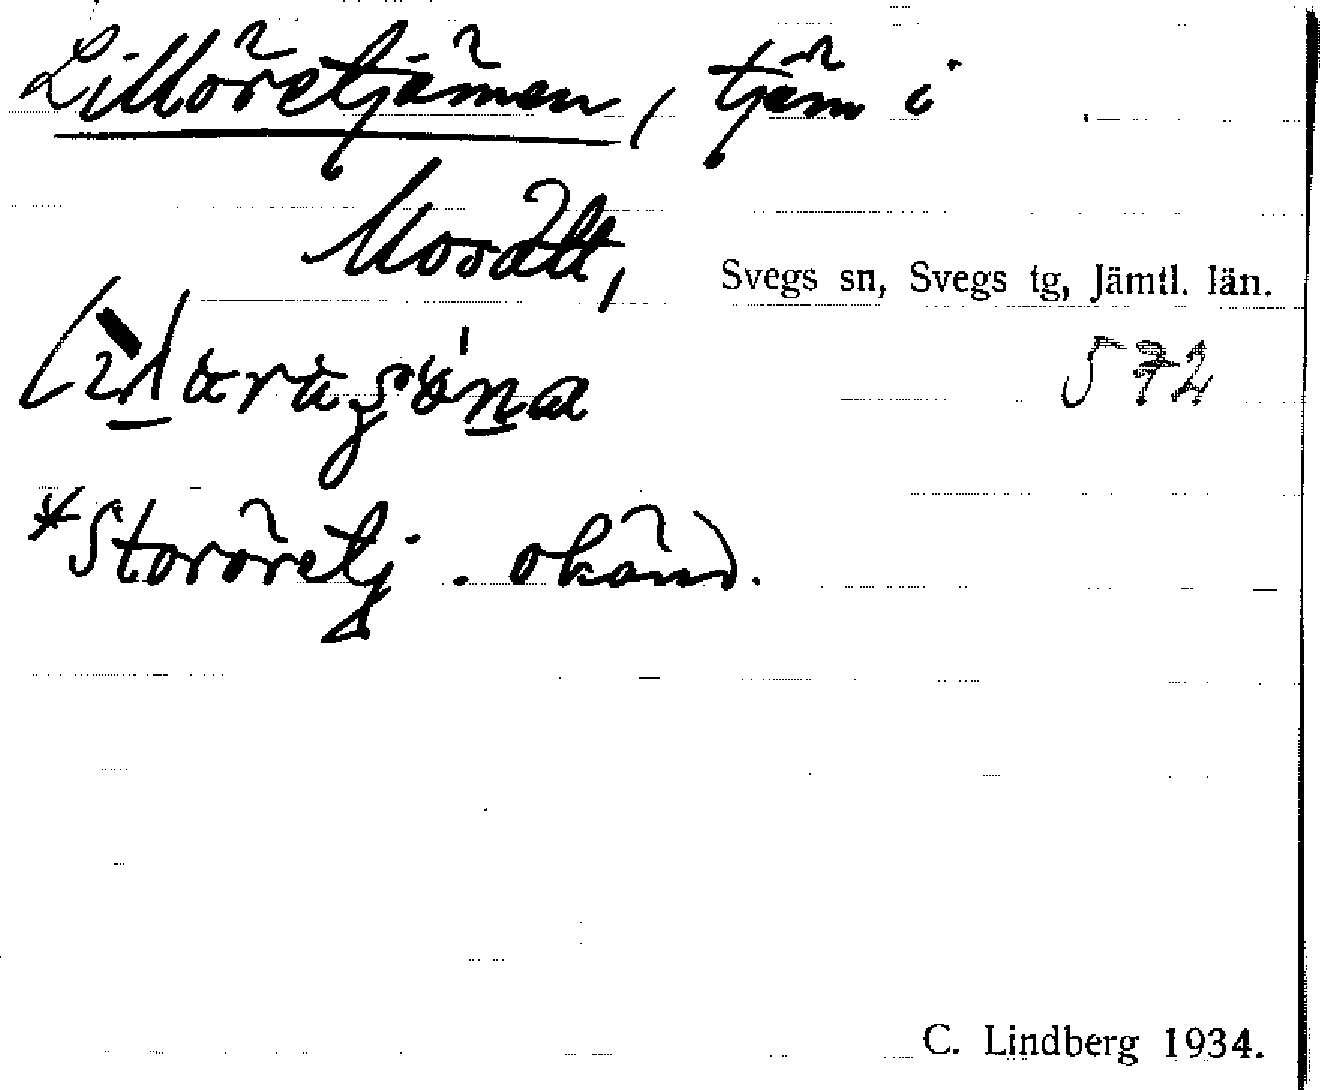 Lillöretjärnen, tjärn i
Moradt,
Svegs sn, Svegs tg, Jämtl. län.
572
*Storöretj. okänd.
C. Lindberg 1934.